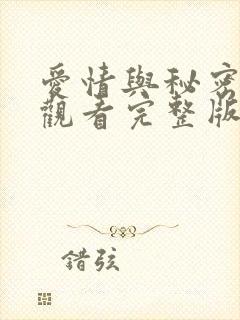 愛情與秘密
觀看完整版
錯弦